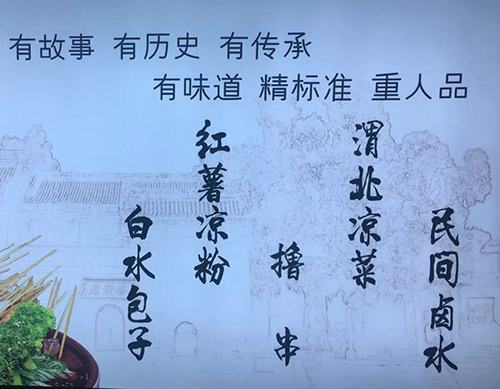 有故事 有历史 有传承
有味道 精标准 重人品
民间卤水
渭北凉菜
撸串
红薯凉粉
白水包子